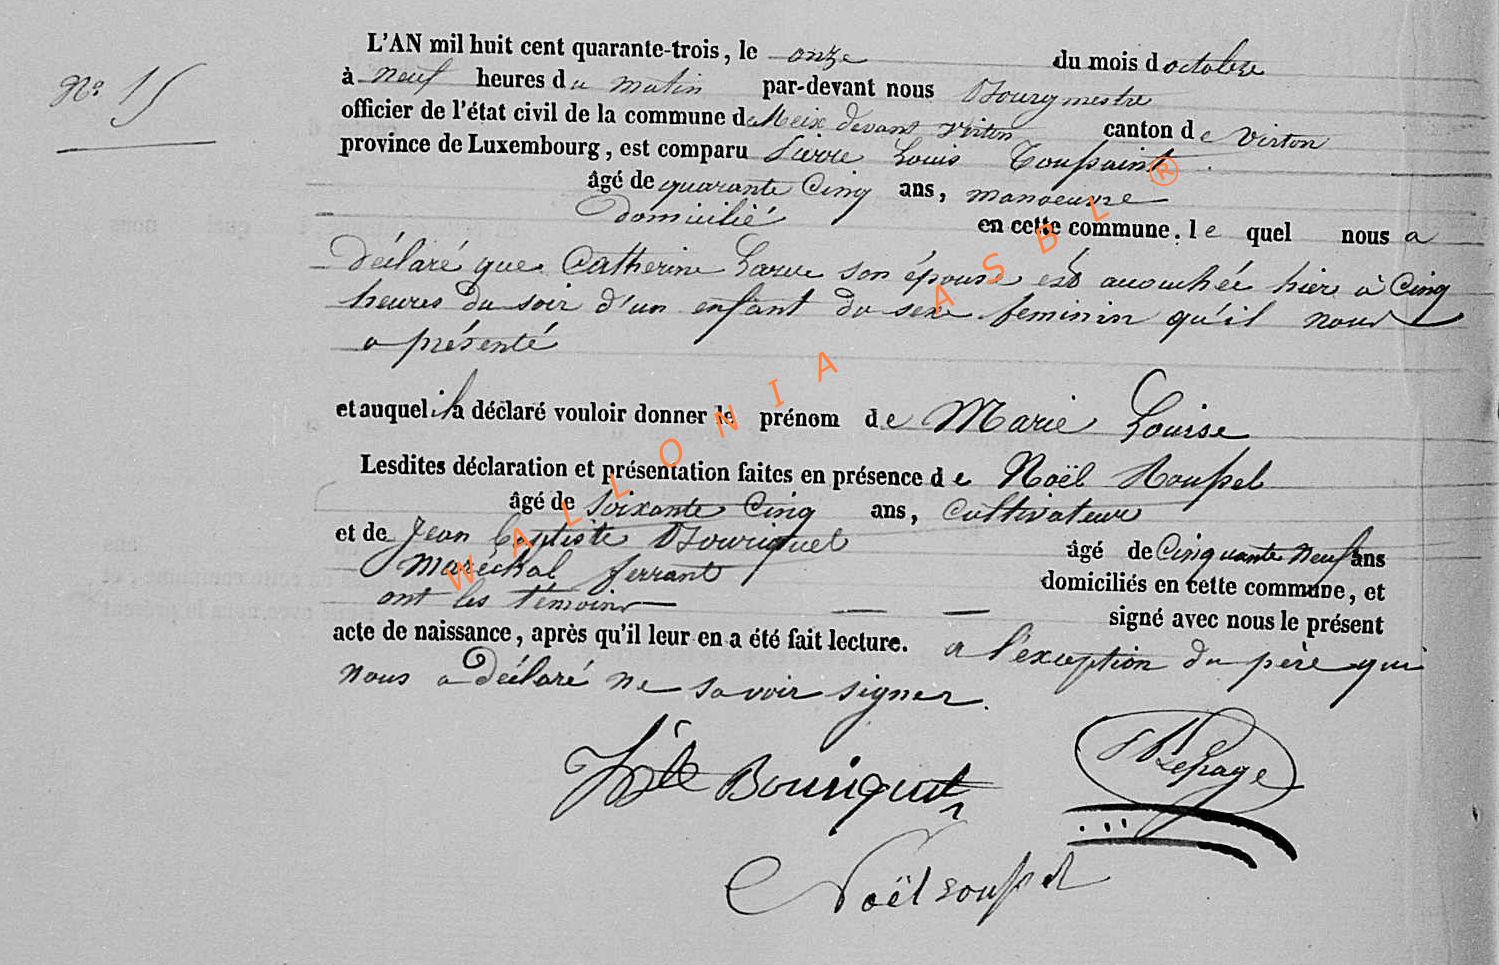 N° 15
L'AN mil huit cent quarante-trois, le onze du mois d octobre
à neuf heures du matin par-devant nous Bourgmestre
officier de l'état civil de la commune de Meix devant Virton canton de Virton
province de Luxembourg, est comparu Pierre Louis Toussaint
âgé de quarante Cinq ans, manoeuvre
Domicilié en cette commune. le quel nous a
déclaré que Catherine Larue son épouse est accouchée hier à Cinq
heures du soir d'un enfant du sexe feminin qu'il nous
a présenté
et auquel il a déclaré vouloir donner le prénom de Marie Louise
Lesdites déclaration et présentation faites en présence de Noël Roussel
âgé de Soixante Cinq ans, Cultivateur
et de Jean Baptiste Bouriquet âgé de Cinquante Neuf ans
Maréchal ferrant domiciliés en cette commune, et
ont les témoins signé avec nous le présent
acte de naissance, après qu'il leur en a été fait lecture. a l'exception du père qui
nous a déclaré ne savoir signer.
Bouriquet
Lepage
Noël roussel
WALLONIA ASBL ®